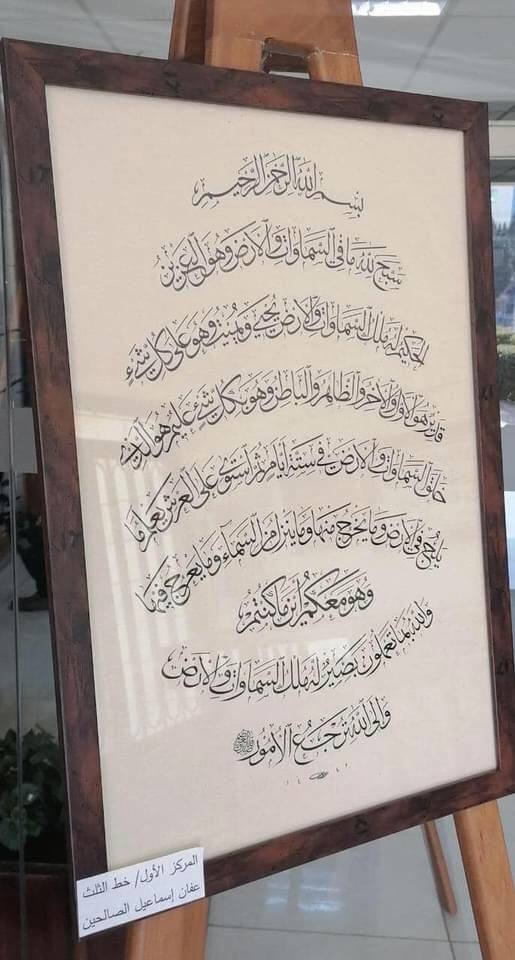 بسم الله الرحمن الرحيم
سبح لله ما في السماوات والأرض وهو العزيز
الحكيم له ملك السماوات والأرض يحيي ويميت وهو على كل شيء
قدير هو الأول والآخر والظاهر والباطن وهو بكل شيء عليم هو الذي
خلق السماوات والأرض في ستة أيام ثم استوى على العرش يعلم ما
يلج في الأرض وما يخرج منها وما ينزل من السماء وما يعرج فيها
وهو معكم أين ما كنتم
والله بما تعملون بصير له ملك السماوات والأرض
وإلى الله ترجع الأمور
المركز الأول/ خط الثلث
عفان إسماعيل الصالحين